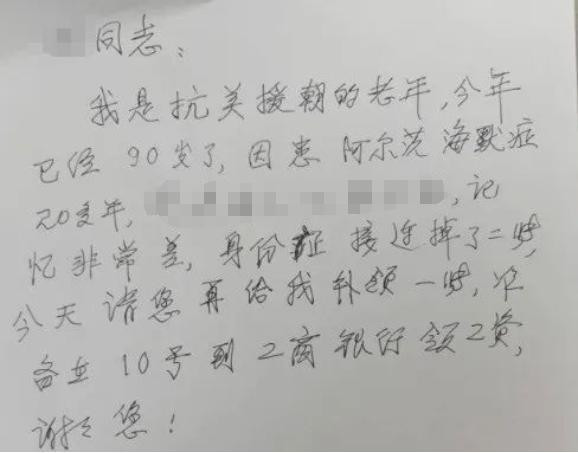 同志：
我是抗美援朝的老年，今年
已经90岁了，因患阿尔茨海默症
20多年，，记
忆非常差，身份证接连掉了二张，
今天请您再给我补领一张，准
备在10号到工商银行领工资，
谢谢您！